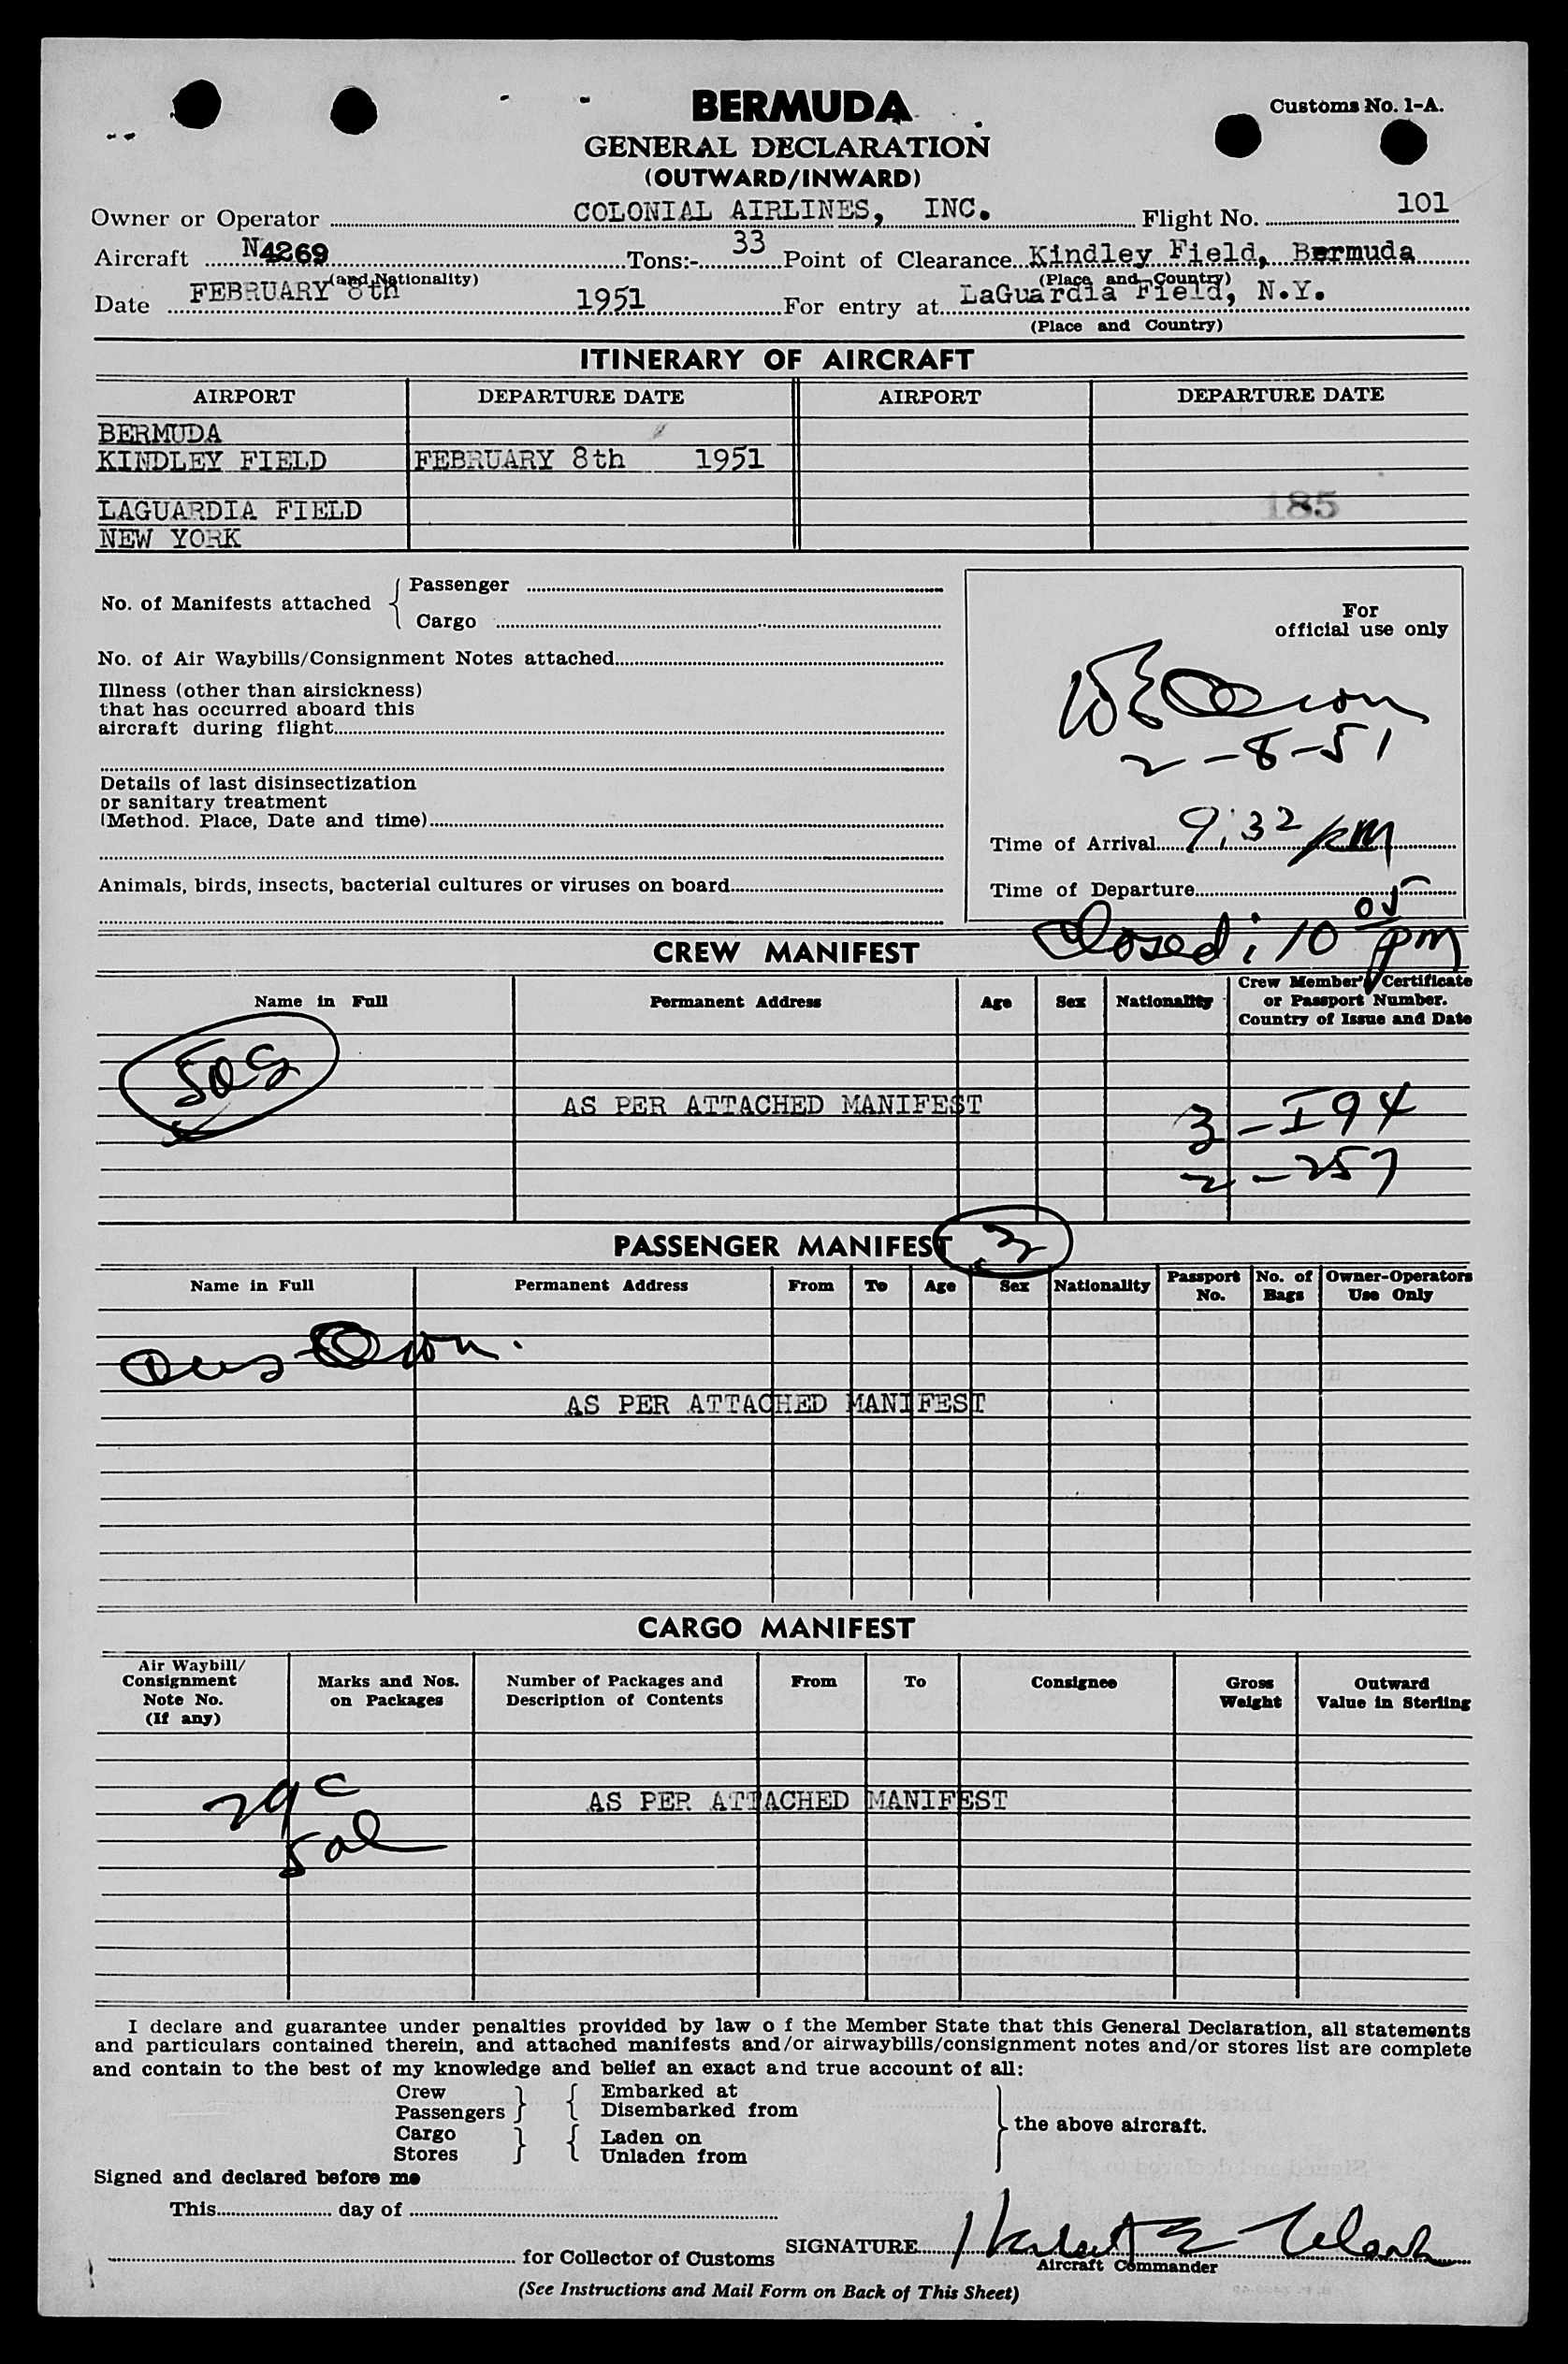 BERMUDA
Customs No. 1-A.
GENERAL DECLARATION
(OUTWARD/INWARD)
Owner or Operator COLONIAL AIRLINES, INC. Flight No. 101
Aircraft N4269 Tons:- 33 Point of Clearance Kindley Field, Bermuda
(and Nationality) (Place and Country)
Date FEBRUARY 8th 1951 For entry at LaGuardia Field, N.Y.
(Place and Country)
ITINERARY OF AIRCRAFT
AIRPORT DEPARTURE DATE AIRPORT DEPARTURE DATE
BERMUDA
KINDLEY FIELD FEBRUARY 8th 1951
LAGUARDIA FIELD 185
NEW YORK
No. of Manifests attached
Passenger
Cargo
No. of Air Waybills/Consignment Notes attached
Illness (other than airsickness)
that has occurred aboard this
aircraft during flight
Details of last disinsectization
or sanitary treatment
(Method. Place, Date and time)
Animals, birds, insects, bacterial cultures or viruses on board
For
official use only
2-8-51
Time of Arrival 9:32 pm
Time of Departure
Closed: 10 05 pm
CREW MANIFEST
Name in Full Permanent Address Age Sex Nationality Crew Member's Certificate
or Passport Number.
Country of Issue and Date
AS PER ATTACHED MANIFEST
3 - I94
2 - 257
PASSENGER MANIFEST
Name in Full Permanent Address From To Age Sex Nationality Passport No. No. of Bags Owner-Operators Use Only
AS PER ATTACHED MANIFEST
CARGO MANIFEST
Air Waybill/
Consignment
Note No.
(If any)
Marks and Nos.
on Packages
Number of Packages and
Description of Contents
From
To
Consignee
Gross
Weight
Outward
Value in Sterling
29c
AS PER ATTACHED MANIFEST
I declare and guarantee under penalties provided by law o f the Member State that this General Declaration, all statements
and particulars contained therein, and attached manifests and/or airwaybills/consignment notes and/or stores list are complete
and contain to the best of my knowledge and belief an exact and true account of all:
Crew Embarked at
Passengers Disembarked from
the above aircraft.
Cargo Laden on
Stores Unladen from
Signed and declared before me
This day of
for Collector of Customs SIGNATURE
Aircraft Commander
(See Instructions and Mail Form on Back of This Sheet)